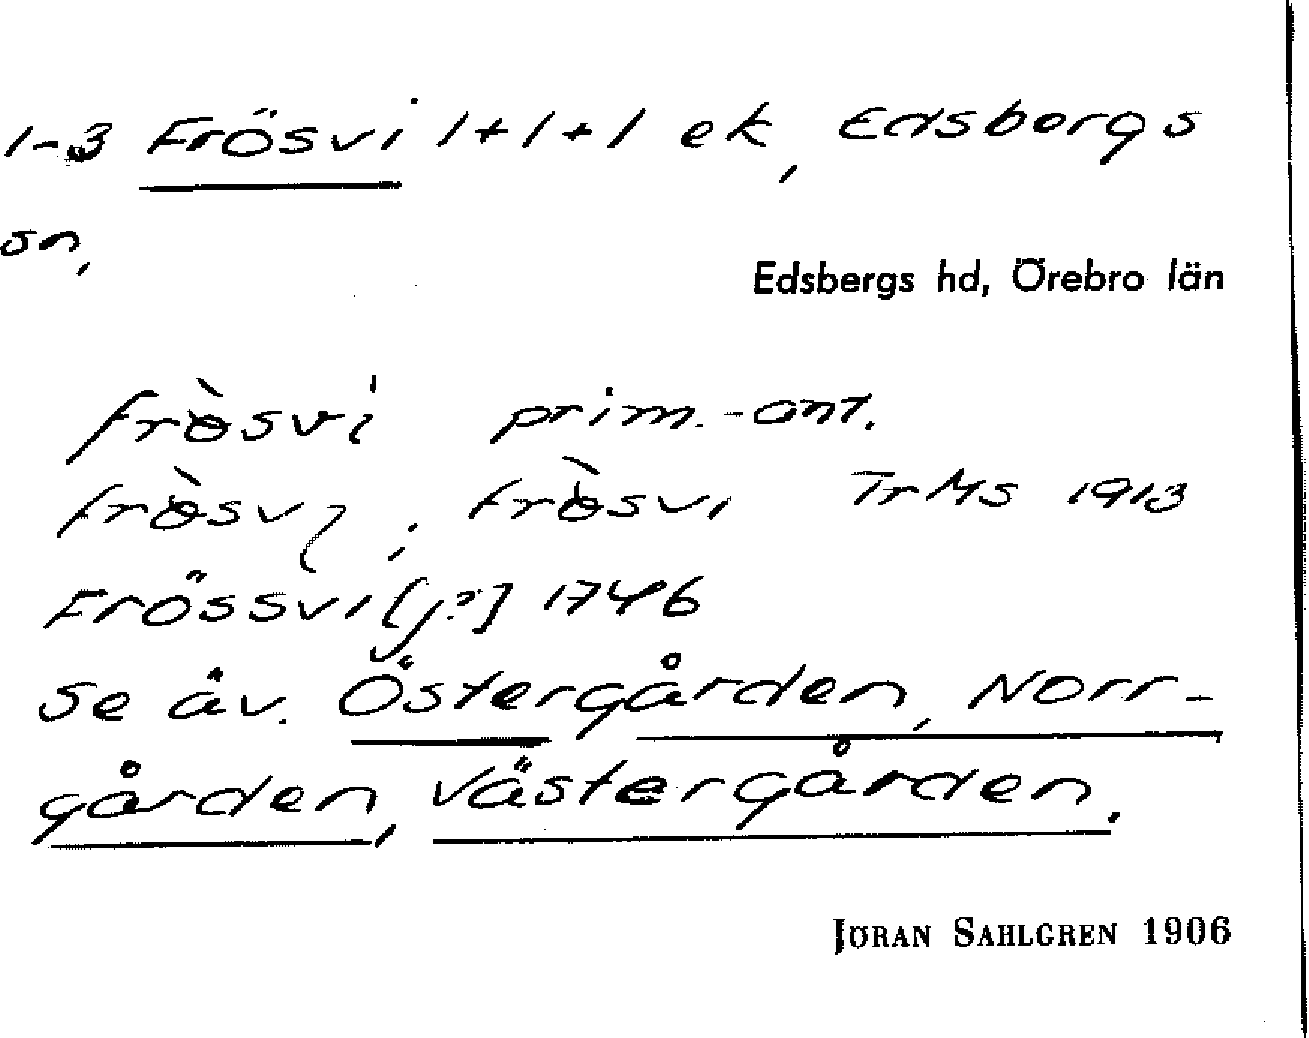 1-3 Frösvi 1+1+1 ek, Edsbergs
sn,
Edsbergs hd, Örebro län
frɵ̀svi prim.-ant.
frɵ̀svɩ ; frɵ̀svi Tr Ms 1913
Frössvi [j?] 1746
se äv. Östergården, Norr-
gården, Västergården.
JÖRAN SAHLGREN 1906